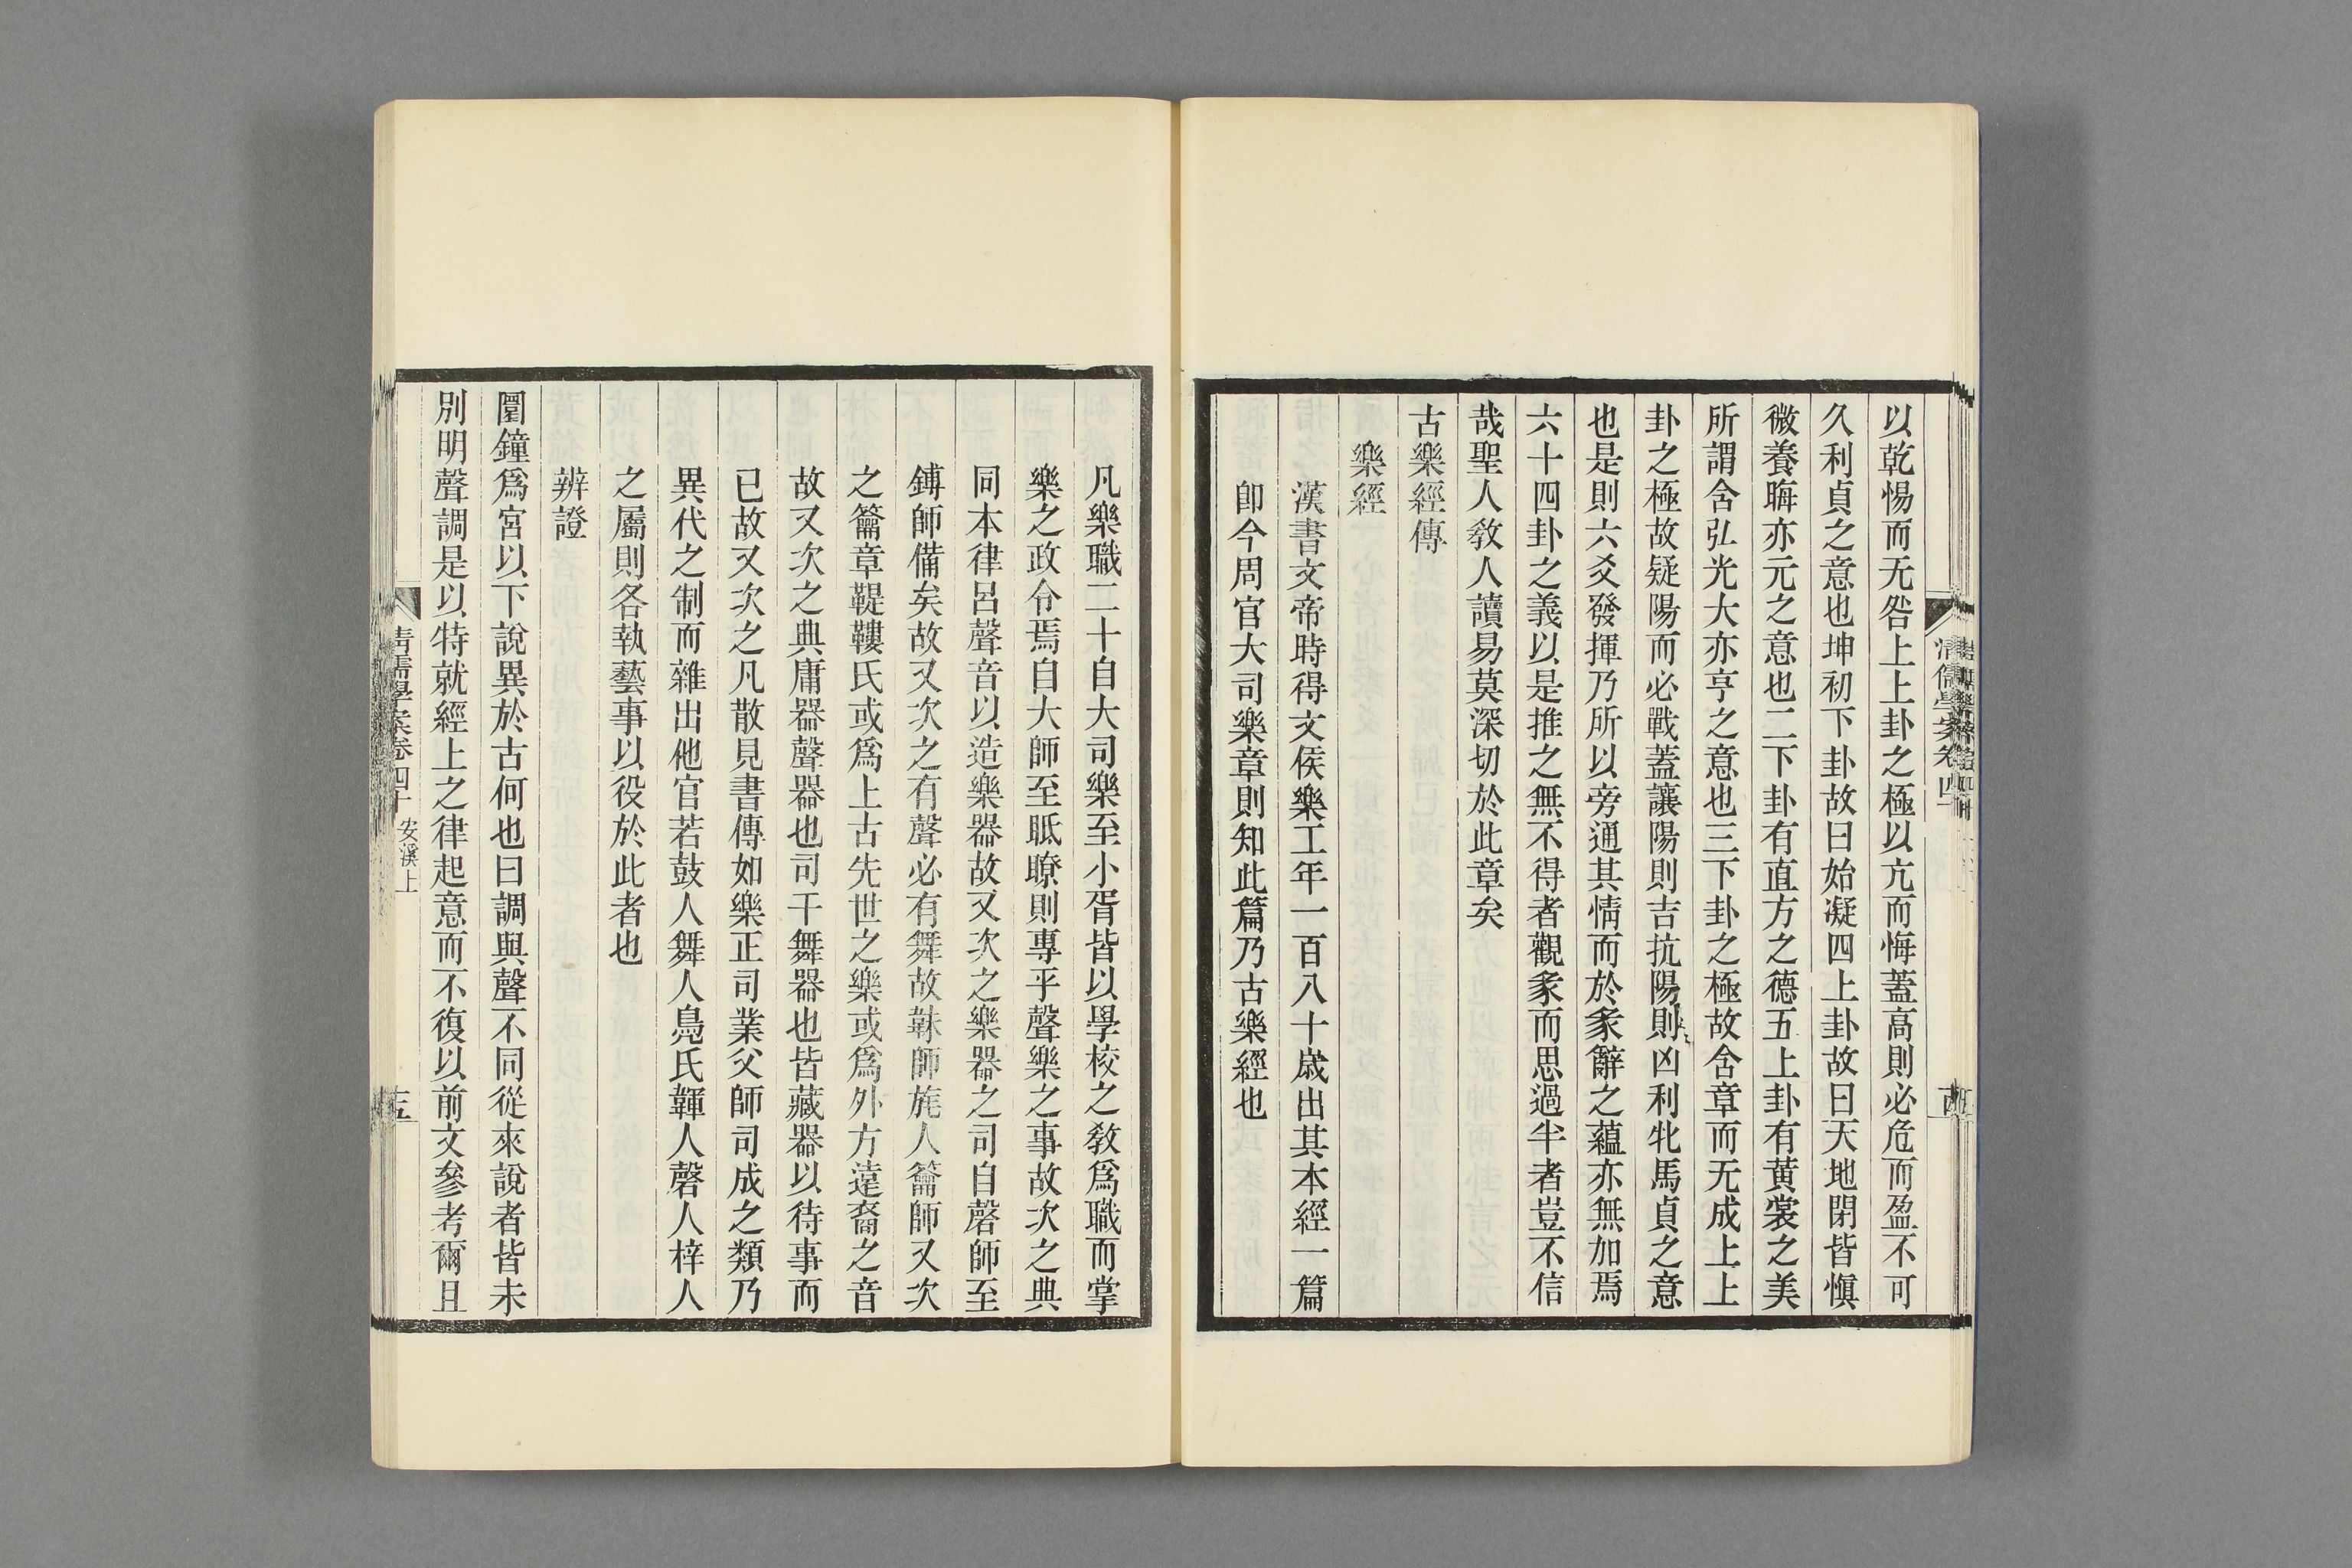 以乾惕而无咎上上卦之極以亢而悔蓋高則必危而盈不可
久利貞之意也坤初下卦故曰始凝四上卦故曰天地閉皆愼
微養晦亦元之意也二下卦有直方之德五上卦有黃裳之美
所謂含弘光大亦亨之意也三下卦之極故含章而无成上上
卦之極故疑陽而必戰蓋讓陽則吉抗陽則凶利牝馬貞之意
也是則六爻發揮乃所以旁通其情而於彖辭之蘊亦無加焉
六十四卦之義以是推之無不得者觀彖而思過半者豈不信
哉聖人敎人讀易莫深切於此章矣
古樂經傳
樂經
漢書文帝時得文侯樂工年一百八十歲出其本經一篇
卽今周官大司樂章則知此篇乃古樂經也
凡樂職二十自大司樂至小胥皆以學校之敎爲職而掌
樂之政令焉自大師至眡瞭則專乎聲樂之事故次之典
同本律呂聲音以造樂器故又次之樂器之司自磬師至
鎛師備矣故又次之有聲必有舞故韎師旄人籥師又次
之籥章鞮鞻氏或爲上古先世之樂或爲外方遠裔之音
故又次之典庸器聲器也司干舞器也皆藏器以待事而
已故又次之凡散見書傳如樂正司業父師司成之類乃
異代之制而雜出他官若鼓人舞人鳧氏韗人磬人梓人
之屬則各執藝事以役於此者也
辨證
圜鐘爲宮以下說異於古何也曰調與聲不同從來說者皆未
別明聲調是以特就經上之律起意而不復以前文參考爾且
清儒學案卷四十 安溪上